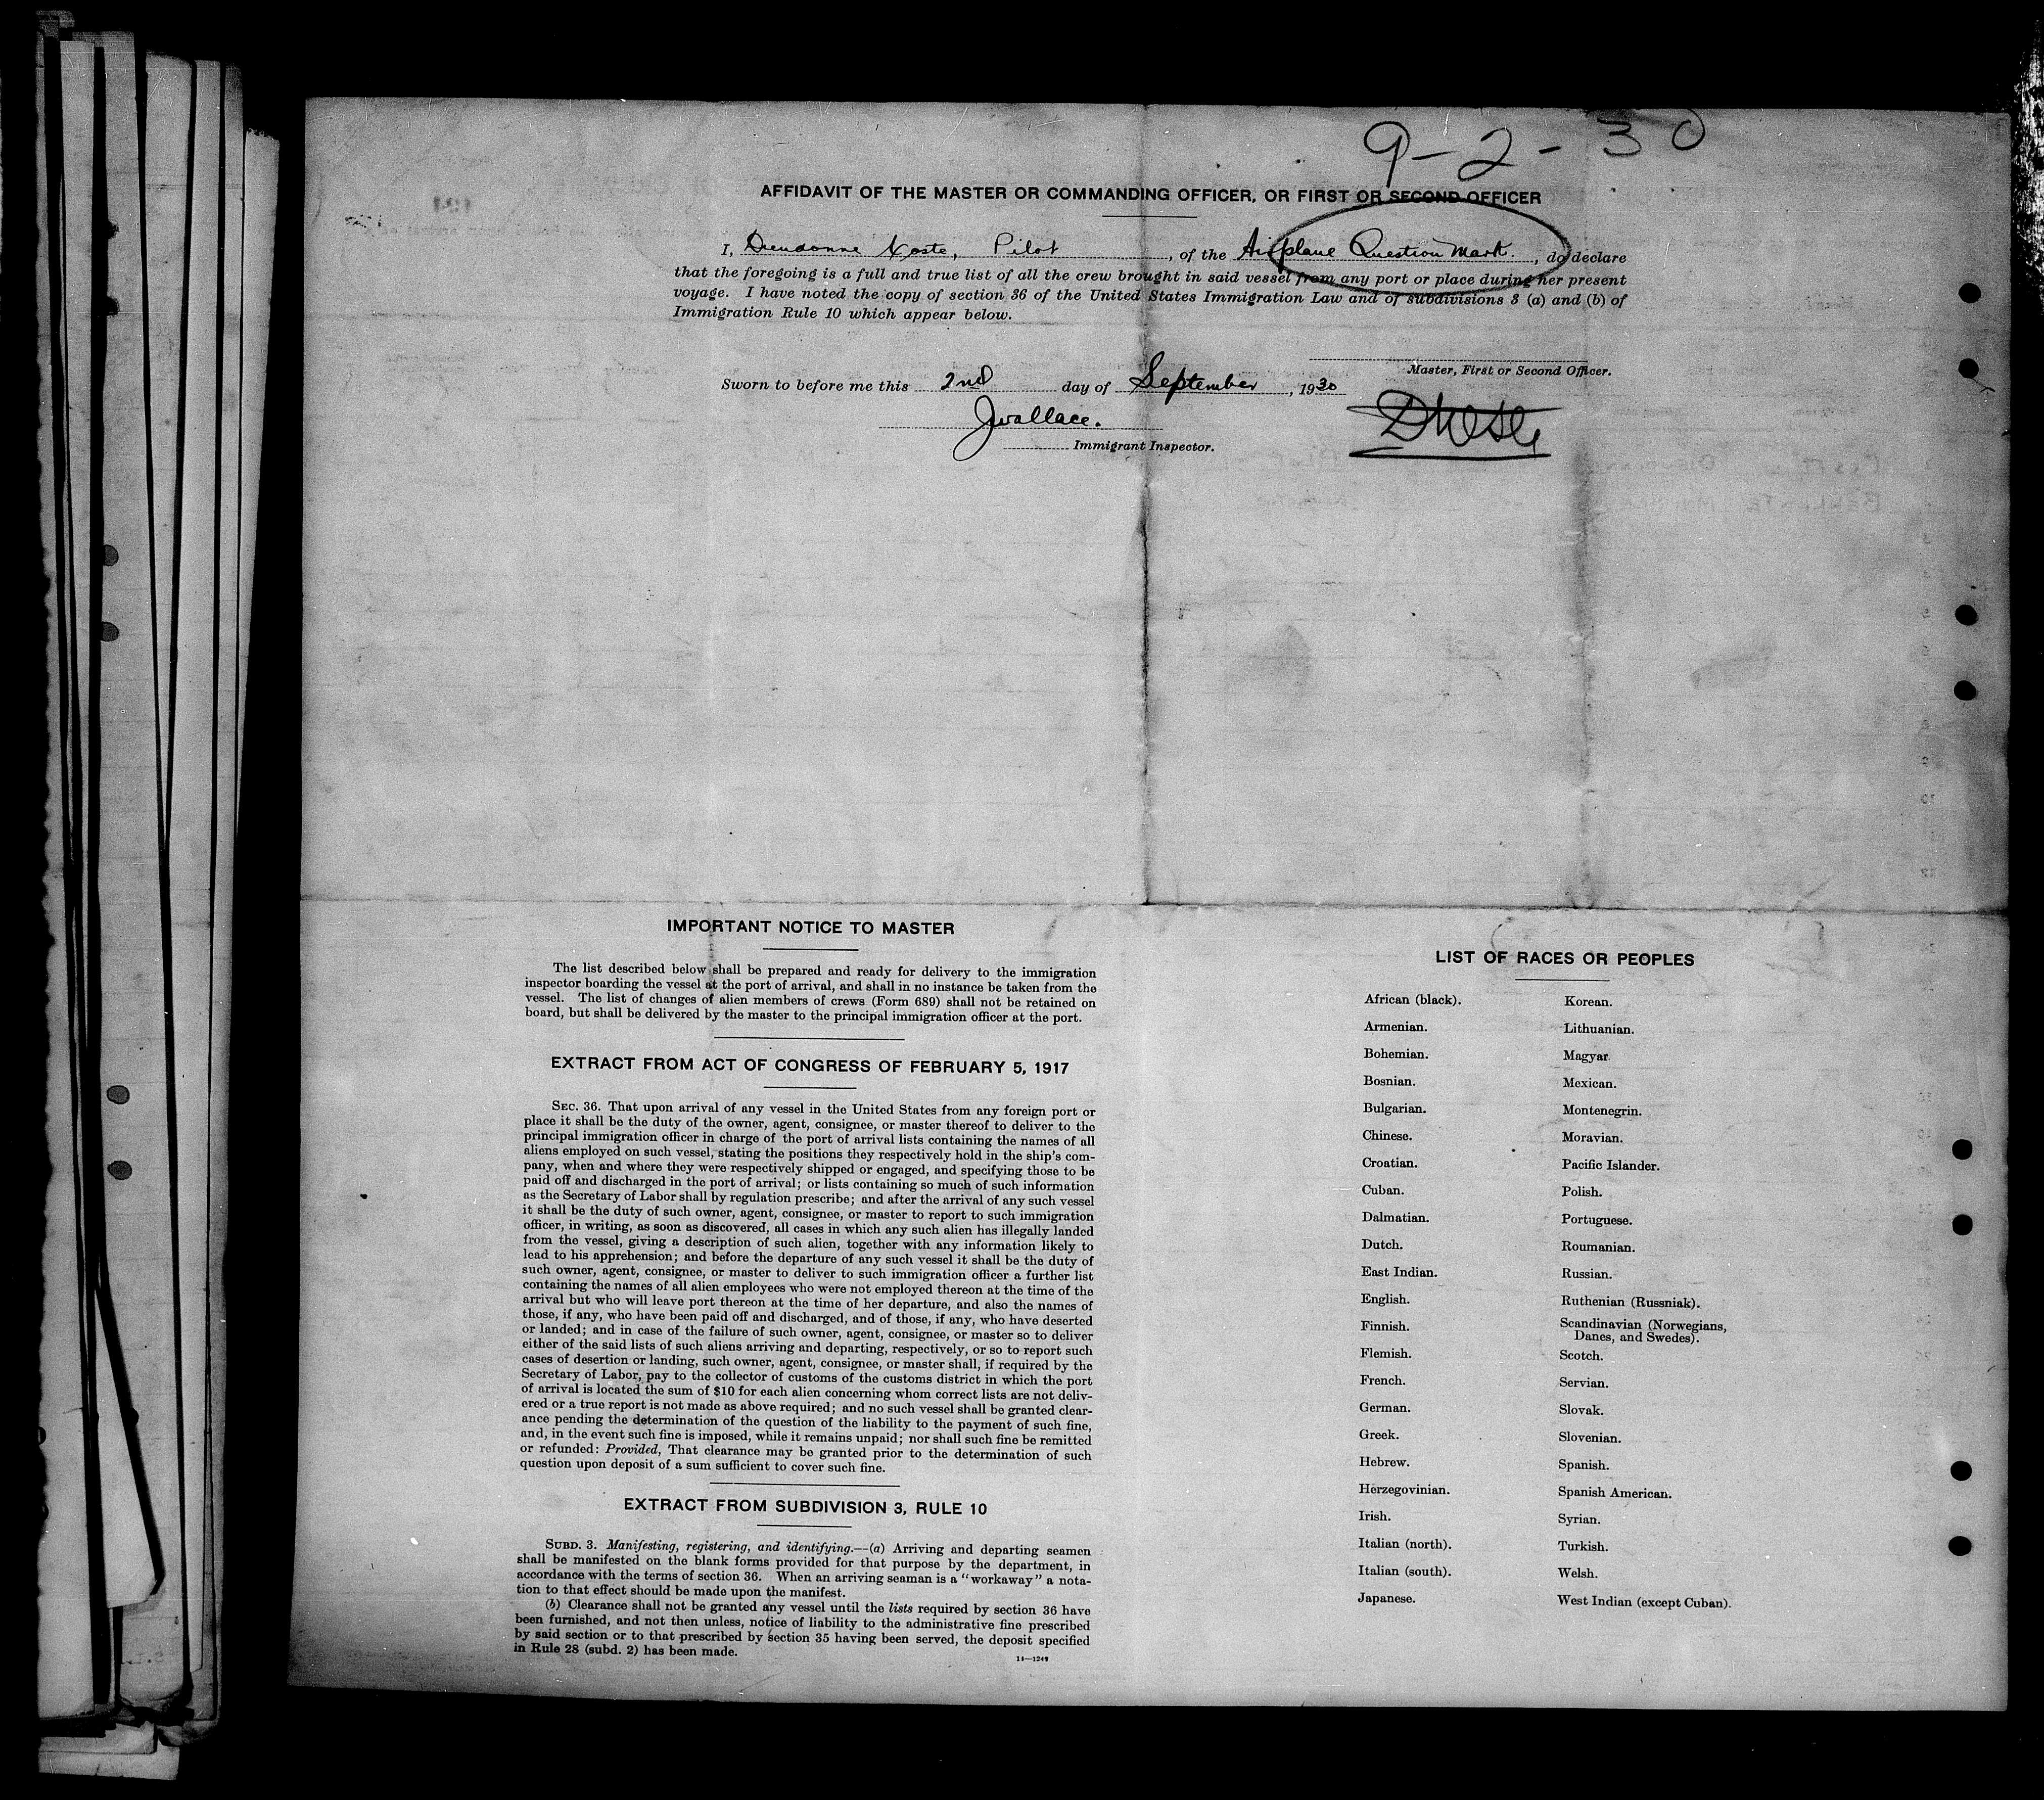 9-2-30
AFFIDAVIT OF THE MASTER OR COMMANDING OFFICER, OR FIRST OR SECOND OFFICER
I, Dieudonne Coste, Pilot, of the Airplane Question Mark., do declare
that the foregoing is a full and true list of all the crew brought in said vessel from any port or place during her present
voyage. I have noted the copy of section 36 of the United States Immigration Law and of subdivisions 3 (a) and (b) of
Immigration Rule 10 which appear below.
Master, First or Second Officer.
Sworn to before me this 2nd day of September, 1930
JWallace.
Immigrant Inspector.
IMPORTANT NOTICE TO MASTER
The list described below shall be prepared and ready for delivery to the immigration
inspector boarding the vessel at the port of arrival, and shall in no instance be taken from the
vessel. The list of changes of alien members of crews (Form 689) shall not be retained on
board, but shall be delivered by the master to the principal immigration officer at the port.
EXTRACT FROM ACT OF CONGRESS OF FEBRUARY 5, 1917
SEC. 36. That upon arrival of any vessel in the United States from any foreign port or
place it shall be the duty of the owner, agent, consignee, or master thereof to deliver to the
principal immigration officer in charge of the port of arrival lists containing the names of all
aliens employed on such vessel, stating the positions they respectively hold in the ship's com-
pany, when and where they were respectively shipped or engaged, and specifying those to be
paid off and discharged in the port of arrival; or lists containing so much of such information
as the Secretary of Labor shall by regulation prescribe; and after the arrival of any such vessel
it shall be the duty of such owner, agent, consignee, or master to report to such immigration
officer, in writing, as soon as discovered, all cases in which any such alien has illegally landed
from the vessel, giving a description of such alien, together with any information likely to
lead to his apprehension; and before the departure of any such vessel it shall be the duty of
such owner, agent, consignee, or master to deliver to such immigration officer a further list
containing the names of all alien employees who were not employed thereon at the time of the
arrival but who will leave port thereon at the time of her departure, and also the names of
those, if any, who have been paid off and discharged, and of those, if any, who have deserted
or landed; and in case of the failure of such owner, agent, consignee, or master so to deliver
either of the said lists of such aliens arriving and departing, respectively, or so to report such
cases of desertion or landing, such owner, agent, consignee, or master shall, if required by the
Secretary of Labor, pay to the collector of customs of the customs district in which the port
of arrival is located the sum of $10 for each alien concerning whom correct lists are not deliv-
ered or a true report is not made as above required; and no such vessel shall be granted clear-
ance pending the determination of the question of the liability to the payment of such fine,
and, in the event such fine is imposed, while it remains unpaid; nor shall such fine be remitted
or refunded: Provided, That clearance may be granted prior to the determination of such
question upon deposit of a sum sufficient to cover such fine.
EXTRACT FROM SUBDIVISION 3, RULE 10
SUBD. 3. Manifesting, registering, and identifying.—(a) Arriving and departing seamen
shall be manifested on the blank forms provided for that purpose by the department, in
accordance with the terms of section 36. When an arriving seaman is a "workaway" a nota-
tion to that effect should be made upon the manifest.
(b) Clearance shall not be granted any vessel until the lists required by section 36 have
been furnished, and not then unless, notice of liability to the administrative fine prescribed
by said section or to that prescribed by section 35 having been served, the deposit specified
in Rule 28 (subd. 2) has been made.
14—1249
LIST OF RACES OR PEOPLES
African (black).
Armenian.
Bohemian.
Bosnian.
Bulgarian.
Chinese.
Croatian.
Cuban.
Dalmatian.
Dutch.
East Indian.
English.
Finnish.
Flemish.
French.
German.
Greek.
Hebrew.
Herzegovinian.
Irish.
Italian (north).
Italian (south).
Japanese.
Korean.
Lithuanian.
Magyar
Mexican.
Montenegrin.
Moravian.
Pacific Islander.
Polish.
Portuguese.
Roumanian.
Russian.
Ruthenian (Russniak).
Scandinavian (Norwegians,
Danes, and Swedes).
Scotch.
Servian.
Slovak.
Slovenian.
Spanish.
Spanish American.
Syrian.
Turkish.
Welsh.
West Indian (except Cuban).